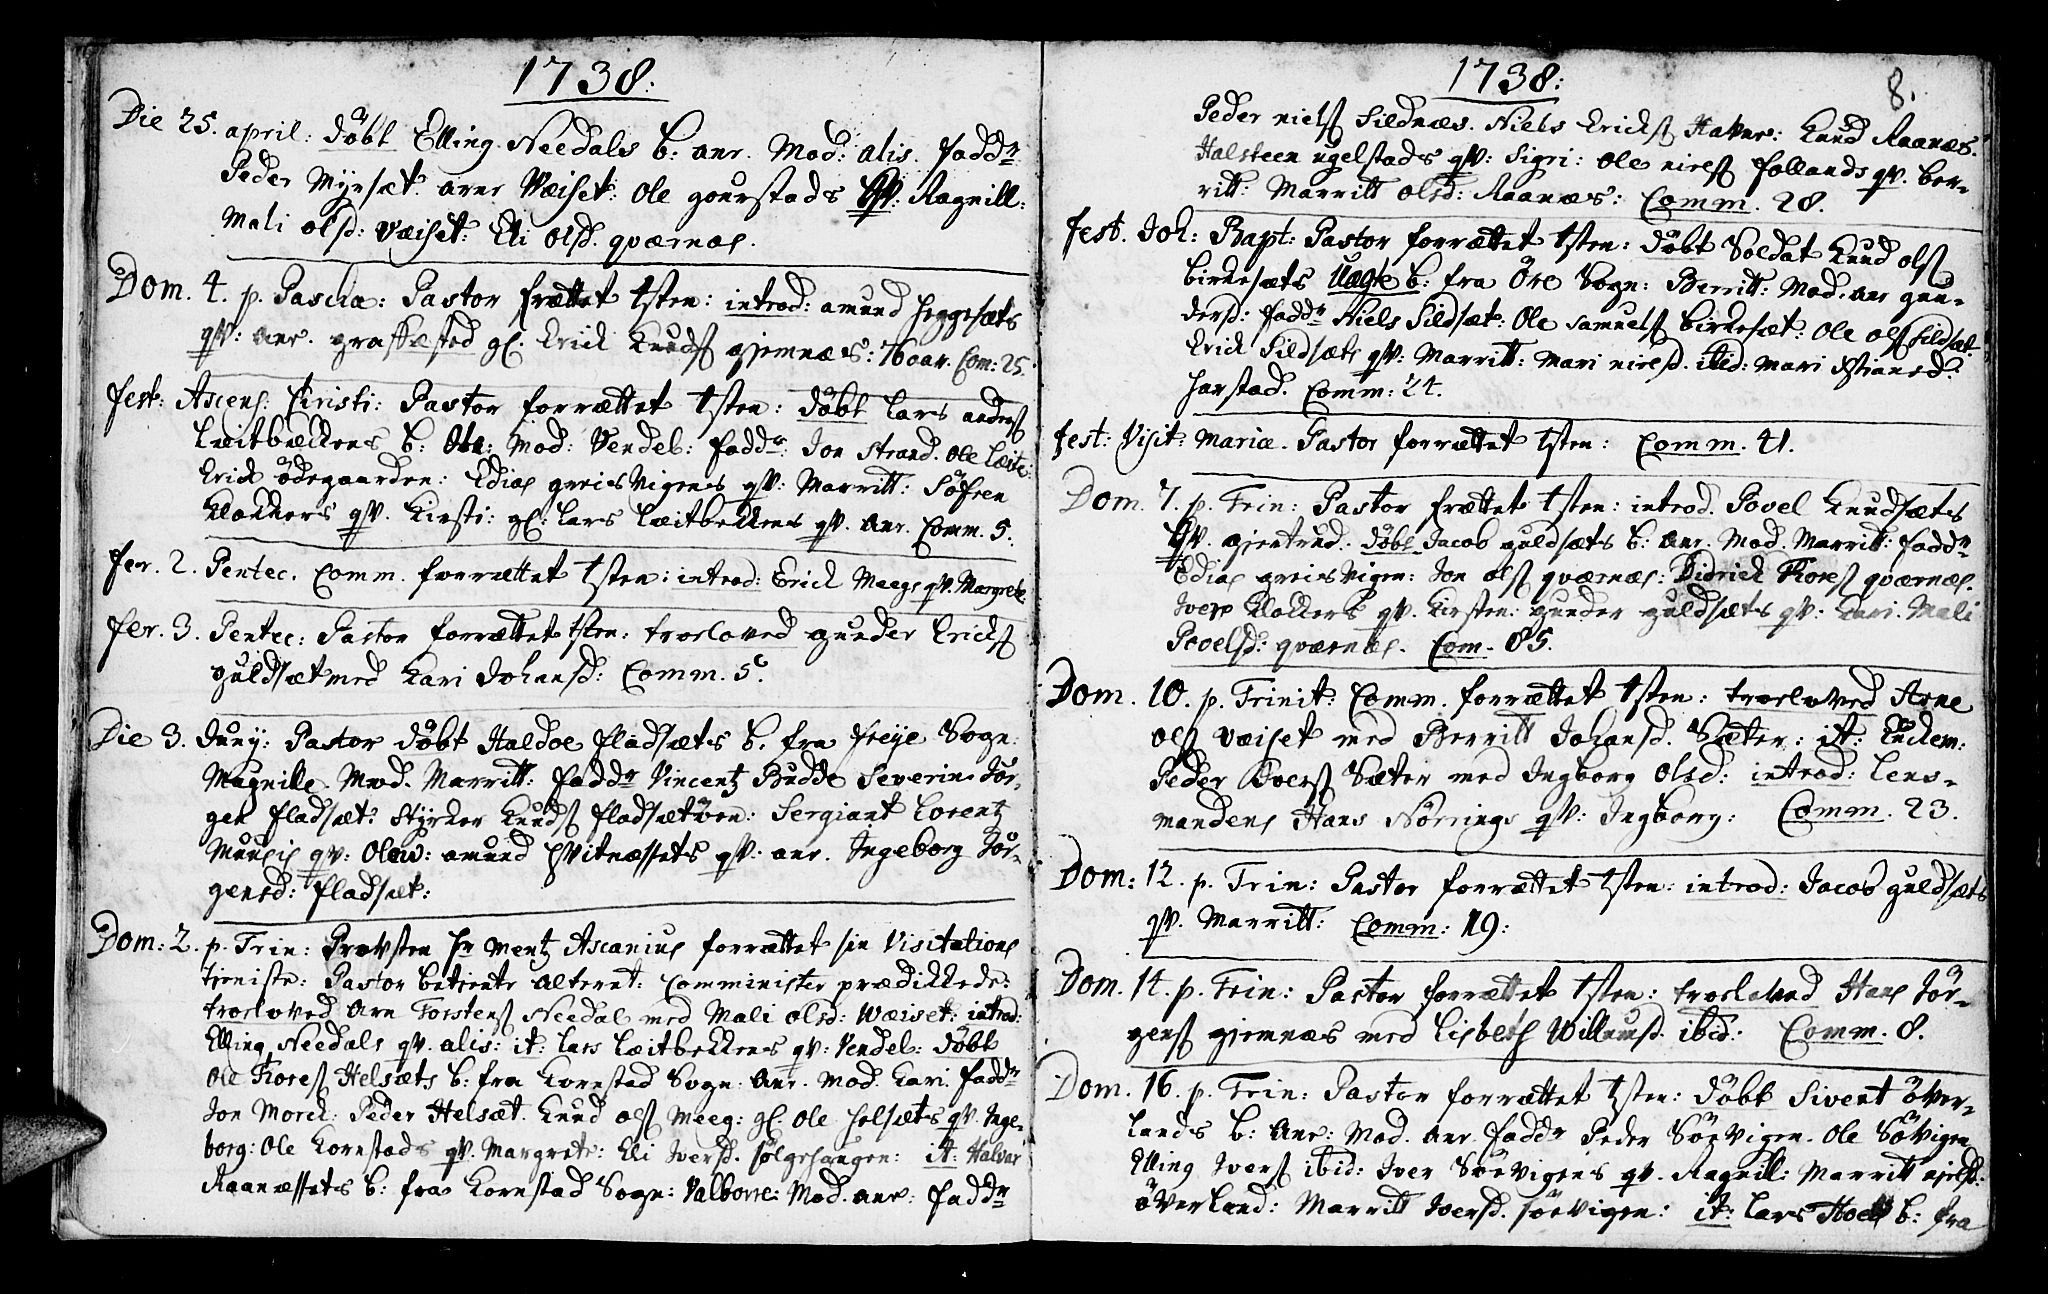 1738:
Die 25. april: döbt Elling Needals b: anr. Mod: alis. fadd:
Peder Myrsæt. arnr Væiset: Ole gourstads qv: Ragnill:
Mali olsd: væiset: Eli olsd. qværnæs.
Dom. 4. p. Pascha: Pastor frættet tsten: introd: amund heggesæts
qv: anr. graffæsted gl. Erick Knuds giemnæs: 76 aar. Com: 25.
fest: Ascens: Christi: Pastor forrættet tsten: döbt Lars anders
Læitbeckens b: Mod: Vendel: fadd: Jon Strand. Ole Læite:
Erick ödegaarden: Edias greisvigens qv: Marritt: Söfren
Klockers qv. Kirsti: gl: Lars Læitbeckens qv. anr. Comm. 5.
fer. 2. Pentec. Comm. forrættet tsten: introd: Erick Meegs qv. Margrete.
fer. 3. Pentec: Pastor forrættet tsten: troelowed gunder Ericks
guldsæt med Kari Johansd: Comm. 5.
Die 3. Juny: Pastor döbt Haldoe fladsæts b. fra freije Sogn:
Magnille Mod. Marritt: fadd Vincentz Budde Severin Jör-
gen fladsæt: Styrker Knuds fladsætöen: Sergiant Lorentz
qv: amund Svitnæssets qv: anr. Ingeborg Jör-
gensd: fladsæt:
Dom: 2. p. Trin: Provsten Hr Mentz Ascanius forrættet sin Visitations
tieniste: Pastor betiente alteret: Comminister prædickede:
troeloved Arn Torstens Needal med Mali olsd: Wæiset: introd:
Elling Needals qv. alis: it: Lars Læitbeckens qv: Vendel: döbt
Ole Tores Helsæts b: fra Kornstad Sogn: Anr. Mod. Kari. fadd
Jon Morck: Peder Helsæt. Knud ols Meeg: gl. Ole Helsæts qv. Inge-
borg: Ole Kornstads qv. Margrete: Eli Iversd. sølgehaugen: it: Halvar
Raanæssets b: fra Kornstad Sogn: Valborre: Mod. anr: fadd
1738:
8.
Peder niels Sildnæs. Niels Ericks Knud Raanæs.
Halsteen ugelstads qv: Sigri: Ole niels follands qv. ber-
ritt: Marritt olsd: Raanæs: Comm. 28.
fest. Joh: Bapt: Pastor forrættet tsten: döbt Soldat Knud ols
birkesæts b: fra Öre Sogn: Berritt: Mod. anr gun-
dersd: fadd Niels Sildsæt: Ole Samuels birkesæt: Ole ols Sildsæt.
Erick Sildsæts qv: Marritt: Mari nielsd. ibid: Mari
harstad. Comm: 24.
fest: Visit: Mariæ. Pastor forrættet tsten: Comm. 41.
Dom. 7. p. Trin: Pastor frættet tsten: introd. Povel Knudsæts
qv. giertrud. döbt Jacob guldsæts b: anr. Mod. Marritt: fadd
Edias greisvigen: Jon ols qværnæs: Didrick Tores qværnæs.
Ivers Klockers qv. Kirsten: gunder guldsæts qv: Kari. Mali
Povelsd: qværnæs. Com. 85.
Dom. 10. p. Trinit: Comm. forrættet tsten: troeloved Arne
ols væiset med Berritt Johansd. Sæter: it: Enckem:
Peder Ivers Sæter med Ingborg olsd: introd: Lens-
mandens Hans Nörrings qv: Ingborg: Comm. 23.
Dom: 12. p. Trin: Pastor forrættet tsten: introd: Jacob guldsæts
qv. Marritt: Comm: 19:
Dom. 14. p. Trin: Pastor forrættet tsten: troeloved Hans Jör-
gens giemnæs med Lisbeth Willumsd. ibid: Comm. 8.
Dom. 16. p. Trin: Pastor forrættet tsten: döbt Sivert över-
lands b: Anr: Mod. Anr. fadd Peder Söevigen. Ole Sövigen
Elling Ivers ibid: Iver Söevigens qv. Ragnill: Marritt
överland: Marritt Iversd. söevigen: it: Lars b: fra